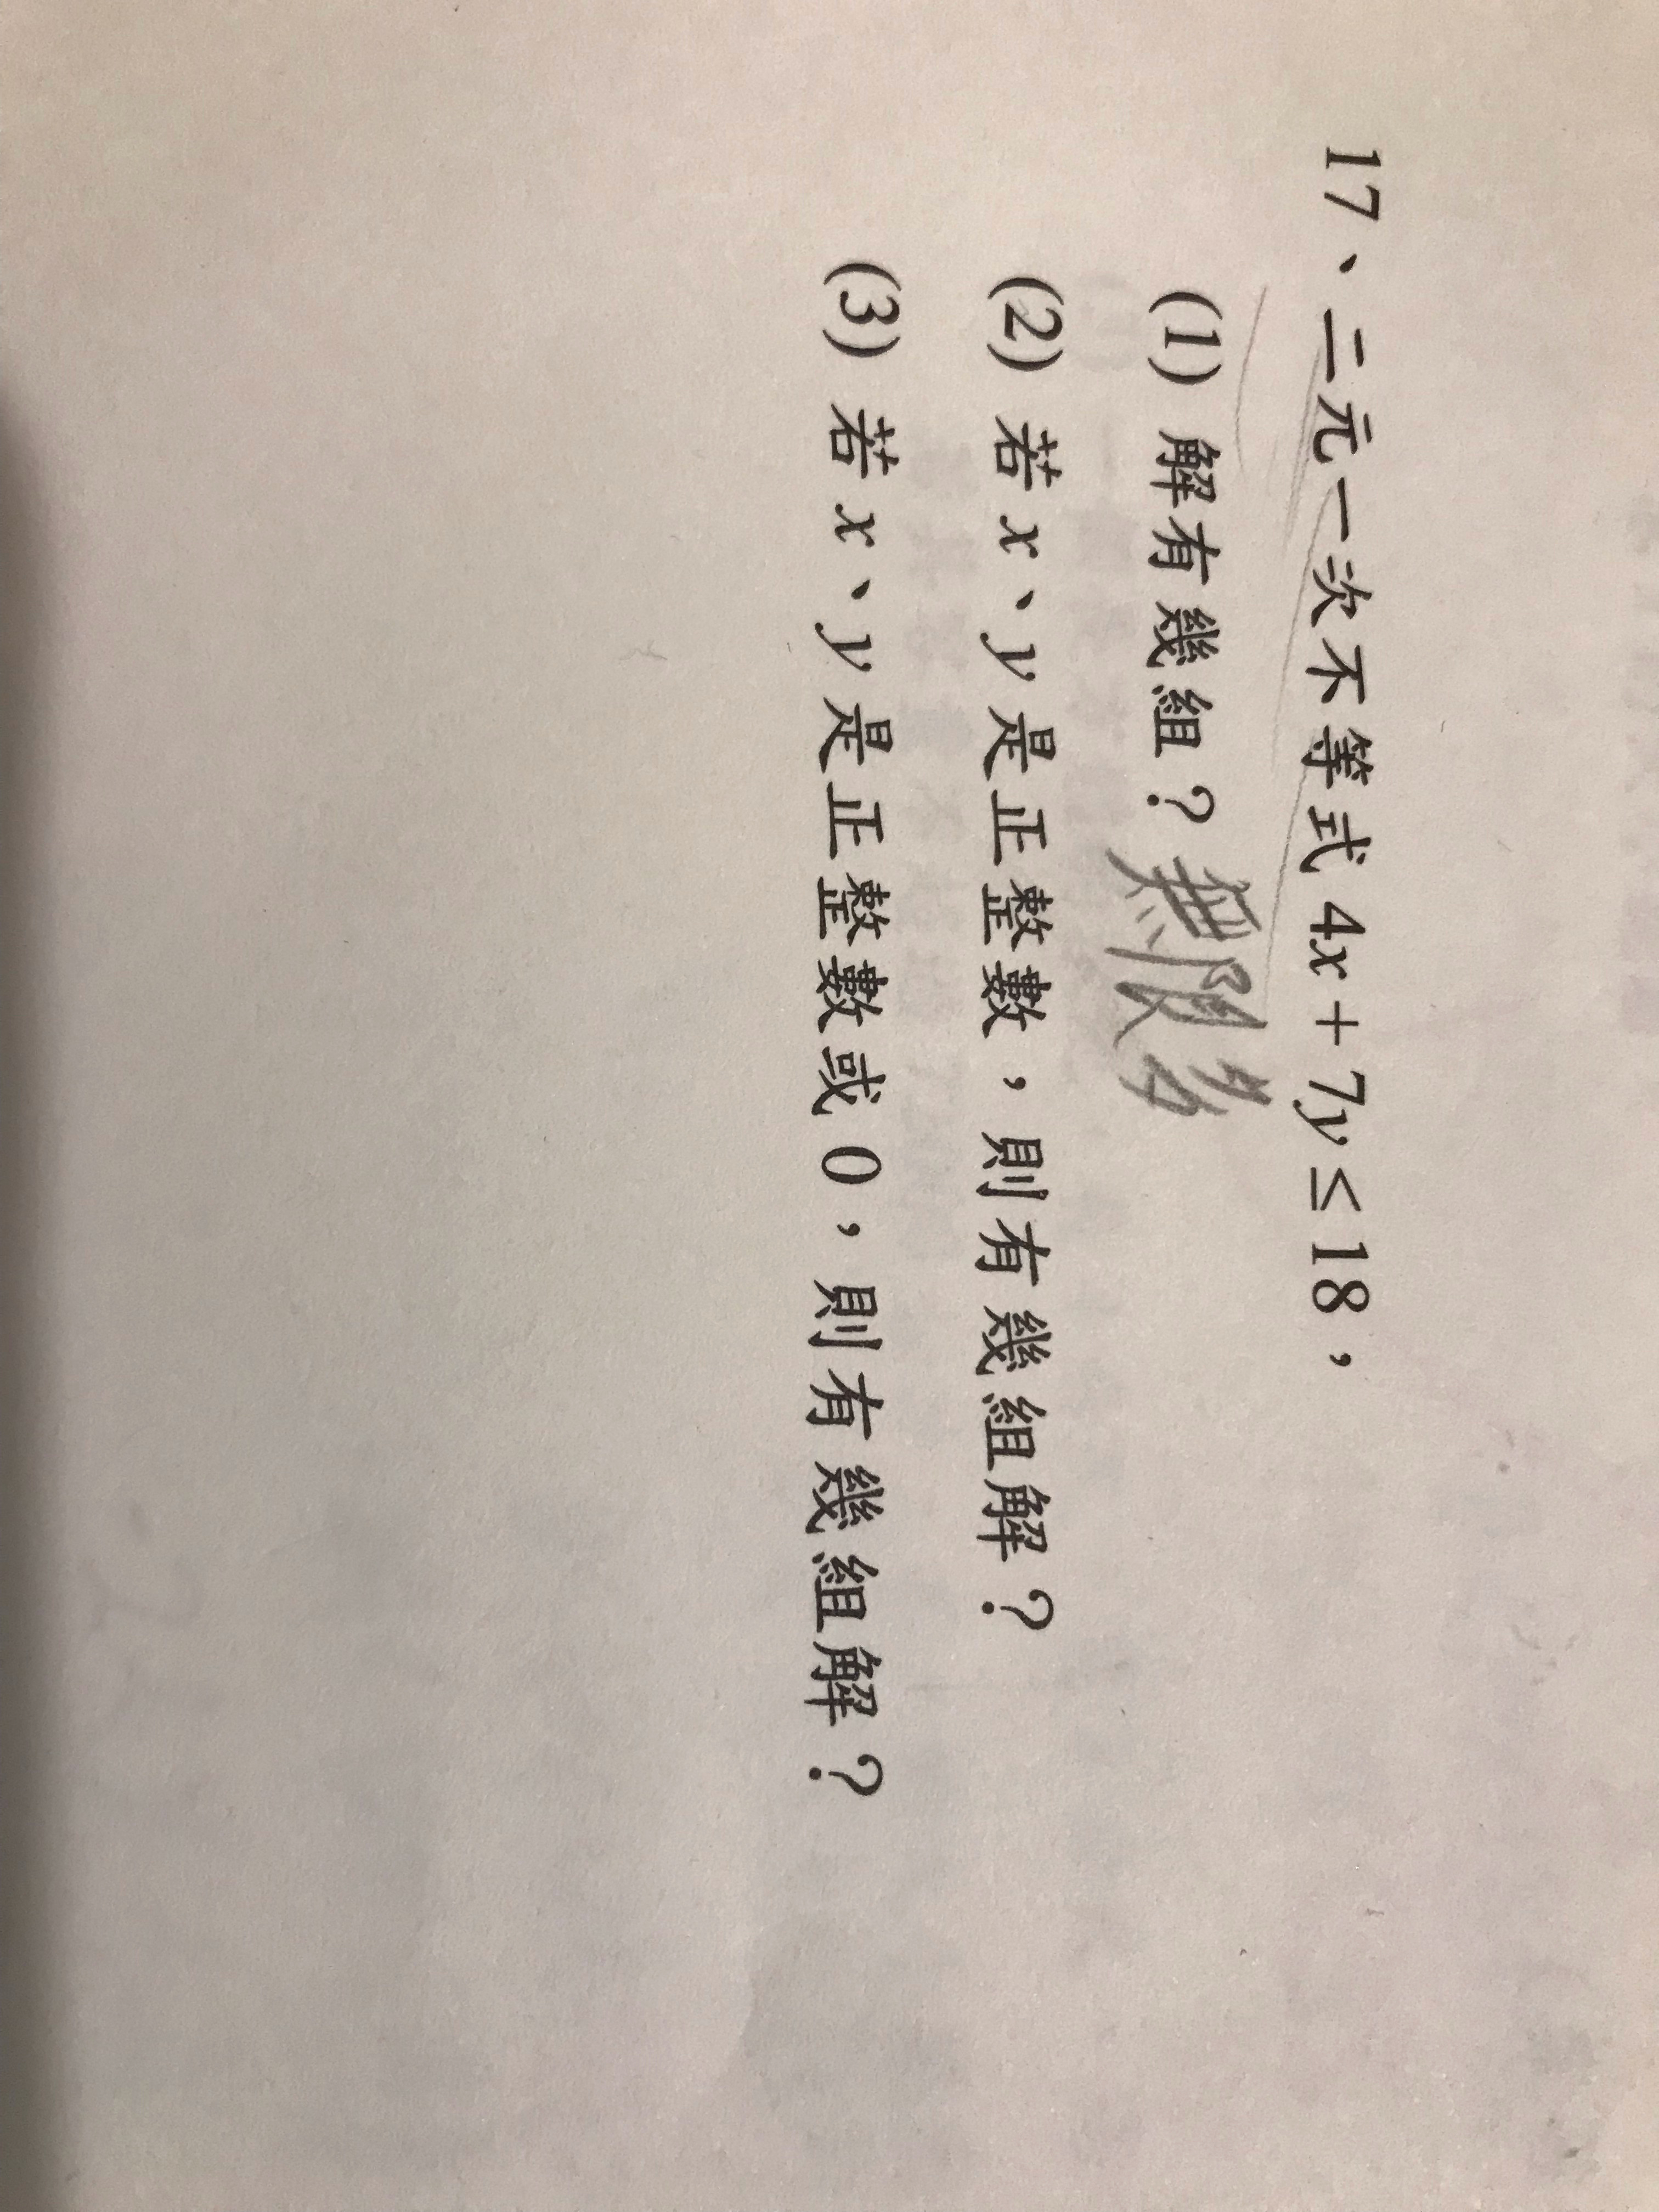 17、二元一次不等式 4x + 7y ≤ 18，
(1) 解有幾組？無限多
(2) 若 x、y 是正整數，則有幾組解？
(3) 若 x、y 是正整數或 0，則有幾組解？